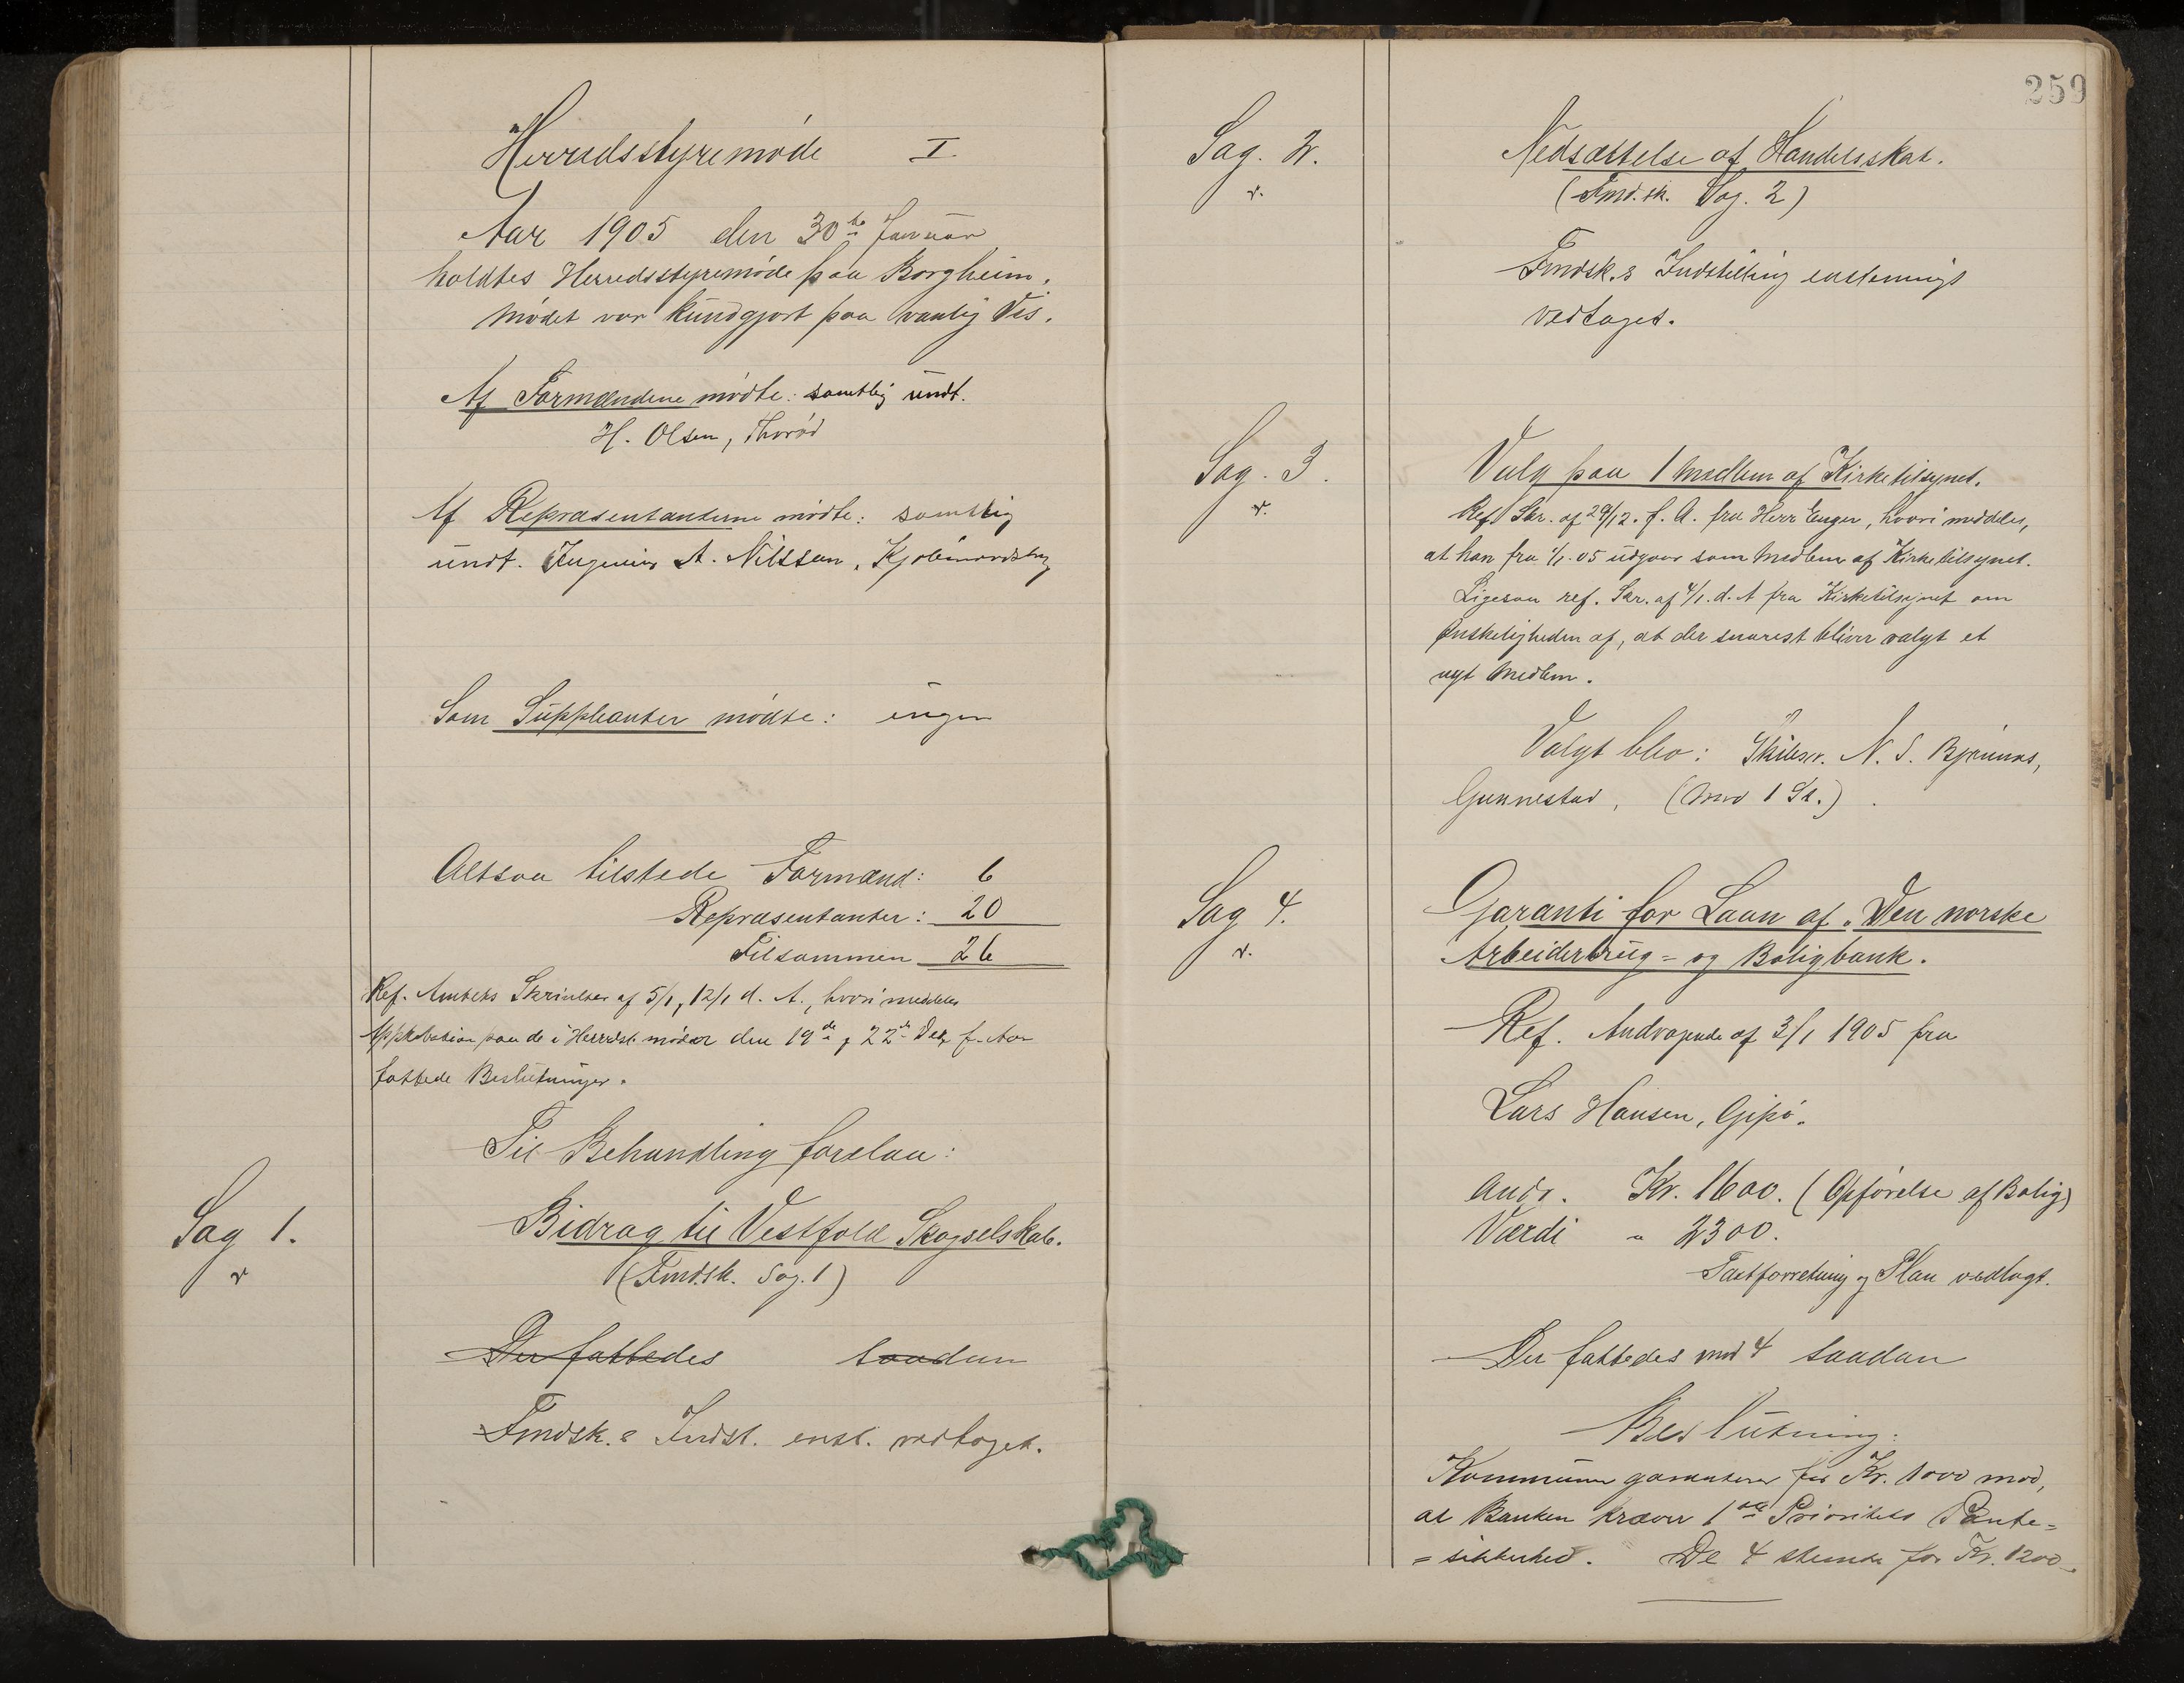 Herredsstyremöde I
Aar 1905 den 30te Januar
holdtes Herredsstyremöde paa Borgheim.
Mödet var kundgjort paa vanlig Vis.
Af Formændene mödte: samtlig undt.
H. Olsen, Thoröd
Af Repræsentanterne mödte: samtlig
undt. Ingeniör A. Nilssen,
Som Suppleanter mödte: ingen
Altsaa tilstede Formænd: 6
Repræsentanter: 20
Tilsammen 26
Ref. Amtets Skrivelser af 5/1, 12/1 d. A., hvori meddeles
Approbation paa de i Herredst. möder den 19de & 22de Dec f. Aar
fattede Beslutninger.
Til Behandling forelaa:
Sag 1.
v
Bidrag til Vestfold Skogselskab.
(Fmdsk. Sag. 1)
Der fattedes saadan
Fmdsk.s Indst. enst. vedtaget.
259
Sag. 2.
v.
Nedsættelse af Handelsskat.
(Fmd.sk. Sag. 2)
Fmdsk.s Indstilling enstemmigt
vedtaget.
Sag. 3.
v.
Valg paa 1 Medlem af Kirketilsynet.
Ref. Skr. af 29/12. f. A. fra Herr Enger, hvori meddeles,
at han fra 1/1. 05 udgaar som Medlem af Kirketilsynet.
Ligesaa ref. Skr. af 4/1. d. A fra Kirketilsynet om
Önskeligheden af, at der snarest bliver valgt et
nyt Medlem.
Valgt blev: N. S.
Gunnestad, (mod 1 St.)
Sag 4.
v.
Garanti for Laan af "Den norske
Arbeiderbrug- og Boligbank.
Ref. Andragende af 3/1 1905 fra
Lars Hansen, Gipö.
Andr. Kr. 1600. (Opförelse af Bolig)
Værdi " 2300.
Taxtforretning og Plan vedlagt.
Der fattedes mod 4 saadan
Beslutning:
Kommunen garanterer for Kr. 1000 mod,
at Banken kræver 1ste Prioritets Pante=
= sikkerhed. De 4 stemte for Kr. 1200.